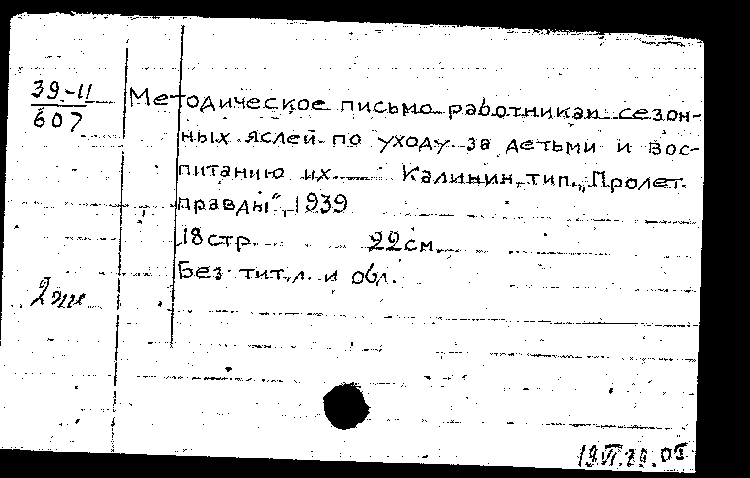 39-11
607
Методическое письмо работникам сезон-
ных яслей по уходу за детьми и вос-
питанию их. Калинин, тип. „Пролет.
правды", 1939
18 стр. 22 см.
Без тит. л. и обл.
19.VI.